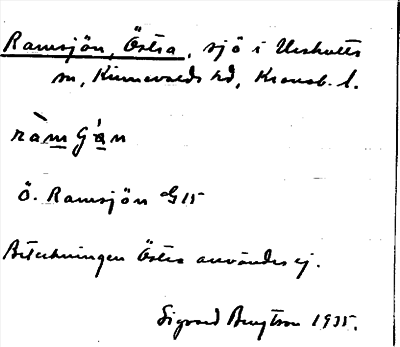 Ramsjön, Östra, sjö i Urshults
sn, Kinnevalds hd, Kronob. l.
ràmʃę́n
Ö. Ramsjön G15
Beteckningen Östra användes ej.
Sigvard Bengtson 1935.